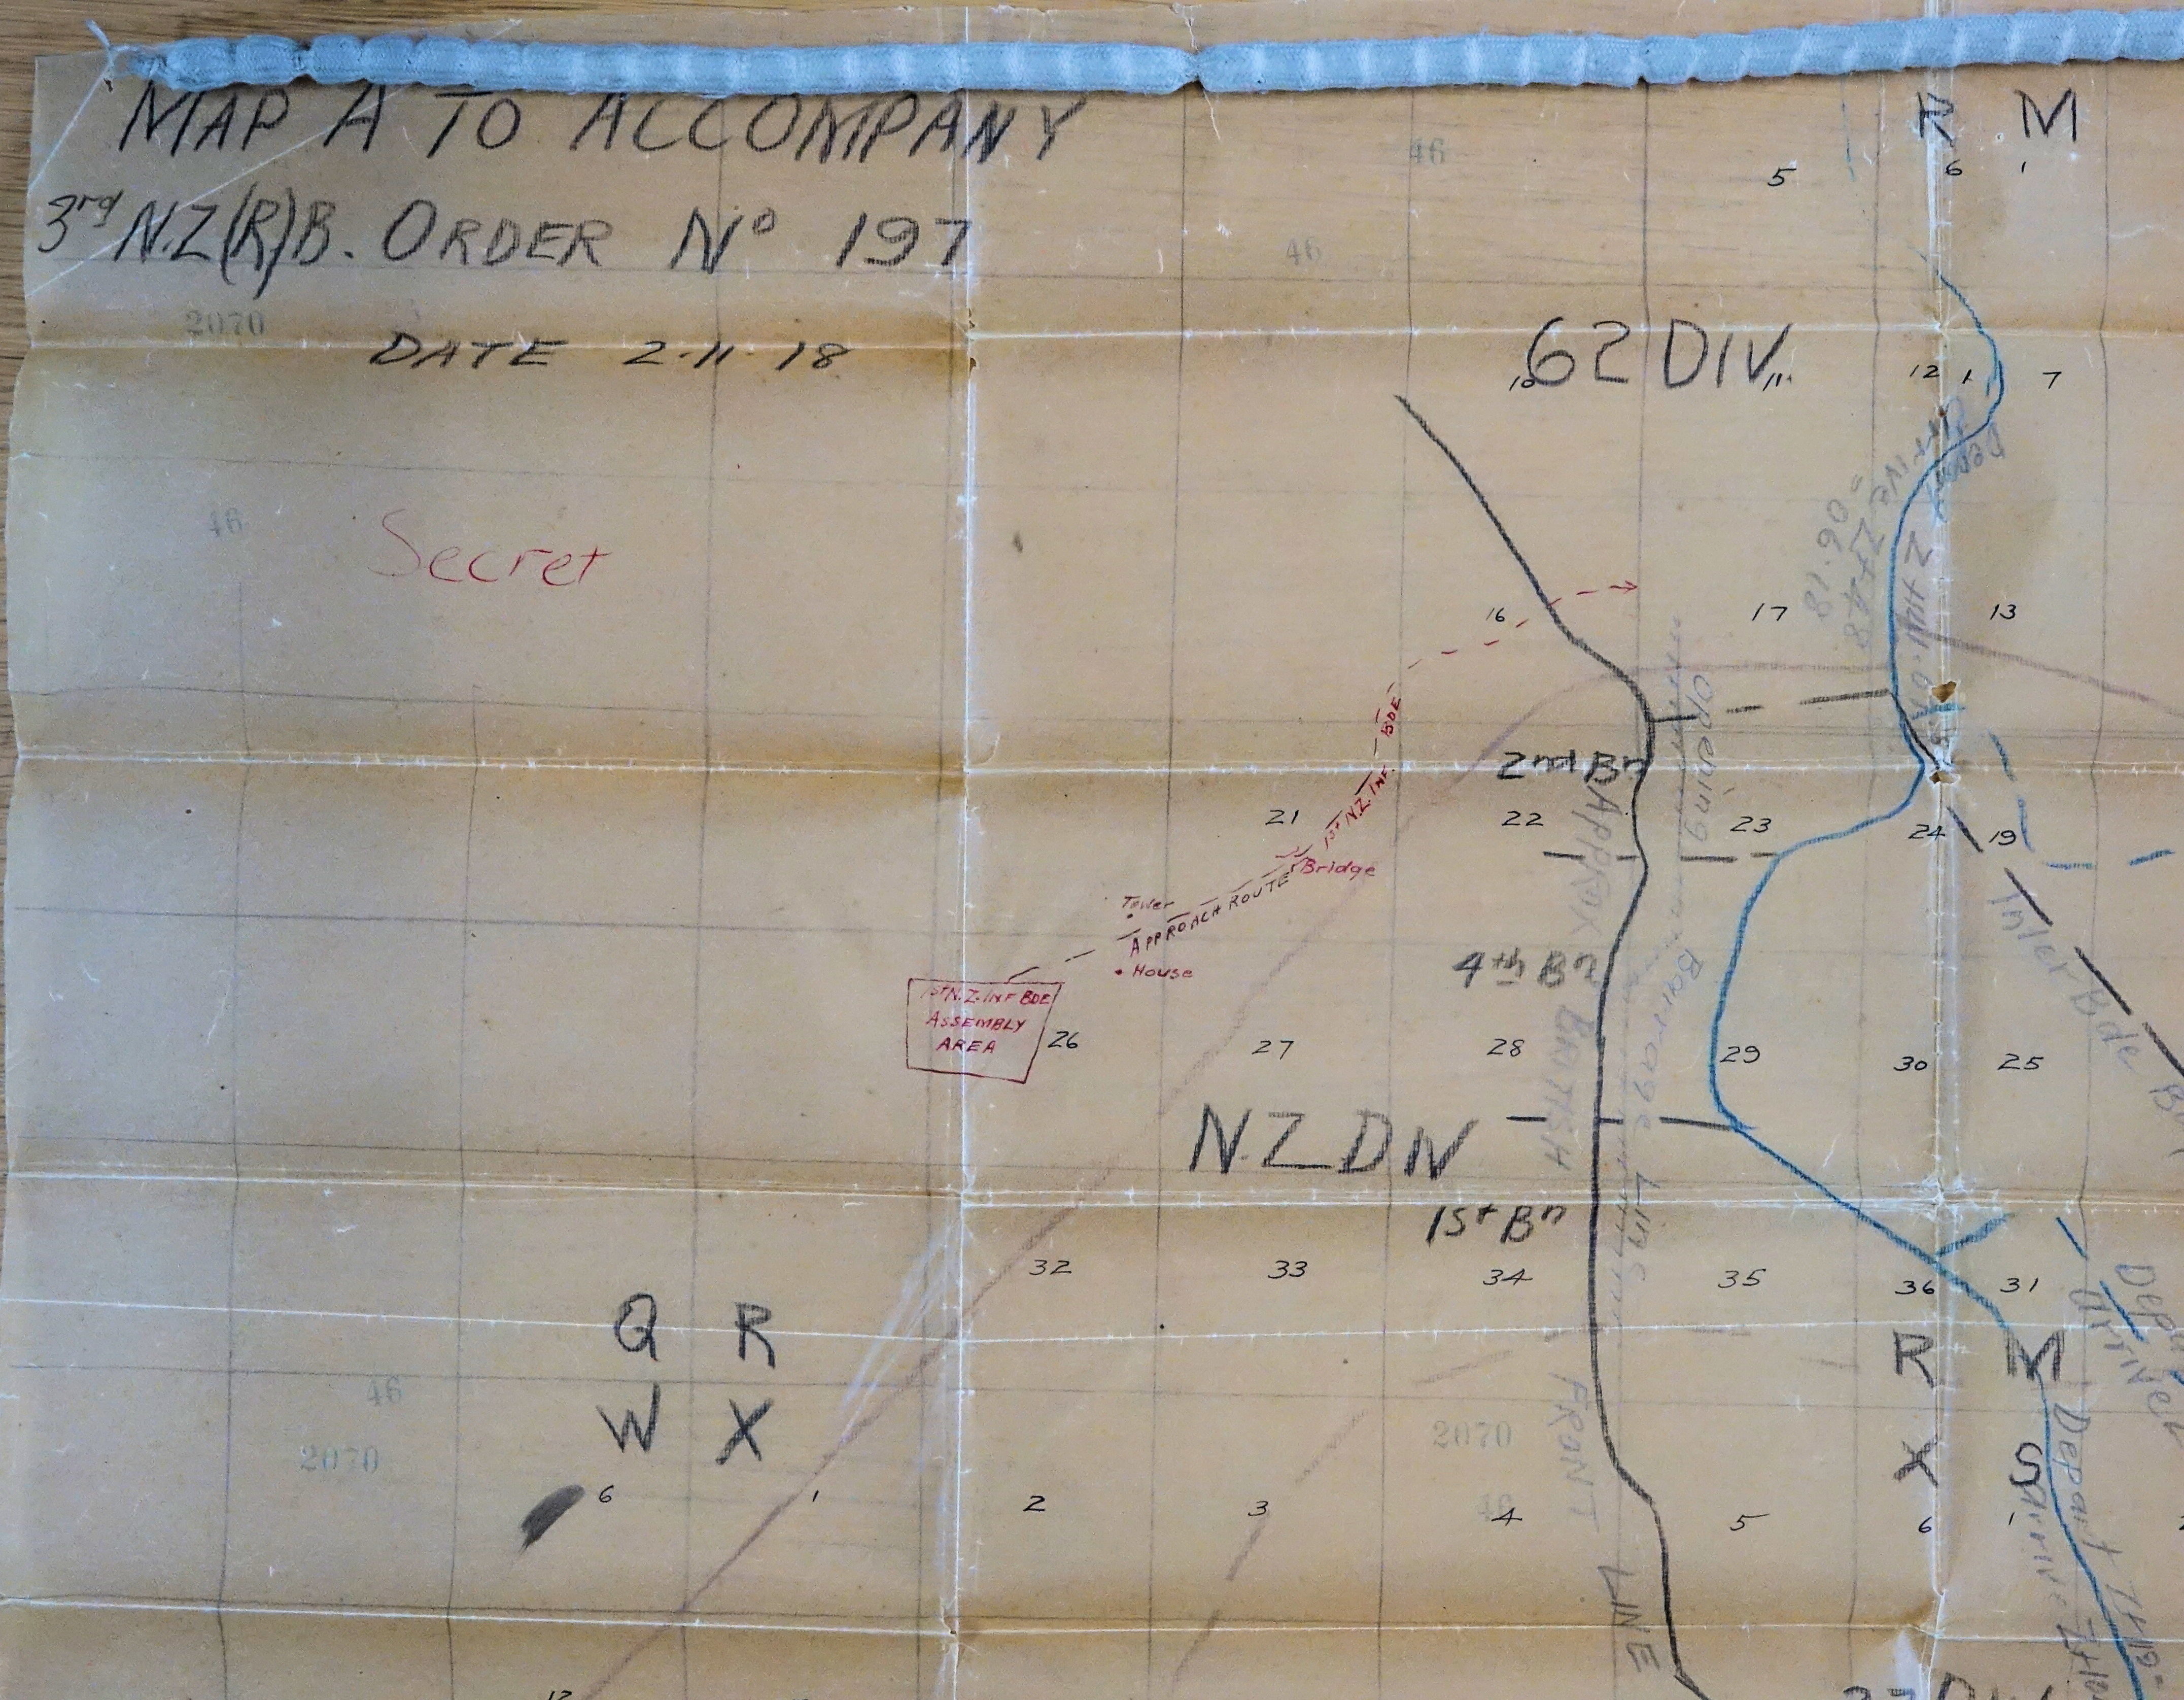 MAP A TO ACCOMPANY
3rd N.Z(R)B. ORDER No 197
DATE 2.11.18
Secret
2070
46
46
46
R M
5 6 1
62 DIV.
10 11 12 7
16 17 13
1st N.Z. INF. BDE
2nd Bn
21 22 23 24 19
Bridge
Tower
APPROACH ROUTE
House
1st N.Z. INF BDE
ASSEMBLY
AREA
4th Bn
26 27 28 29 30 25
N.Z. DIV
1st Bn
32 33 34 35 36 31
Q R
W X
R M
X S
46
2070
2070
46
6 1 2 3 4 5 6 1
12
APPROX BRITISH FRONT LINE
Opening Barrage Line
Inter Bde
Depart
Arrive